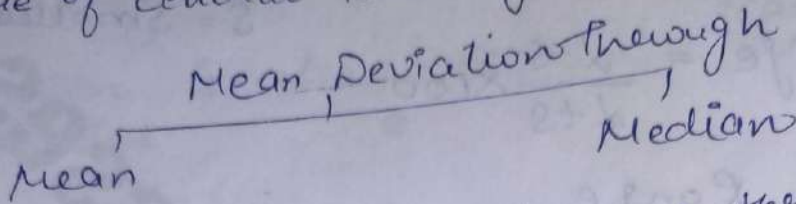 of
Mean Deviation Through
Mean
Median